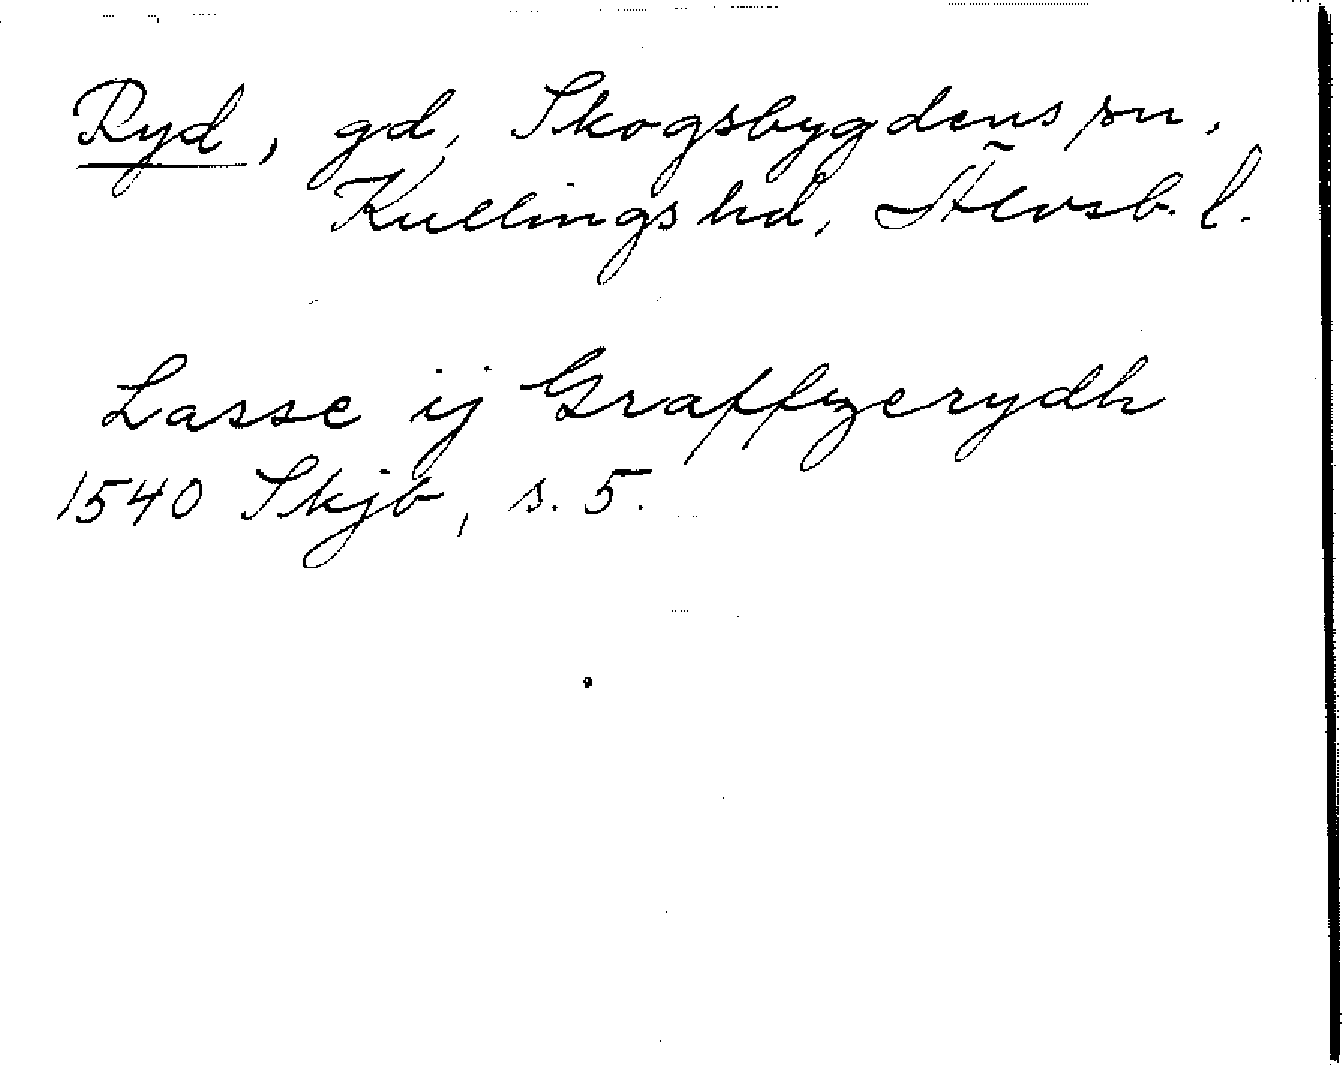 Ryd, gd, Skogsbygdens sn,
Kullings hd, Älvsb. l.
Lasse ij Graffzerydh
1540 Skjb, s. 5.